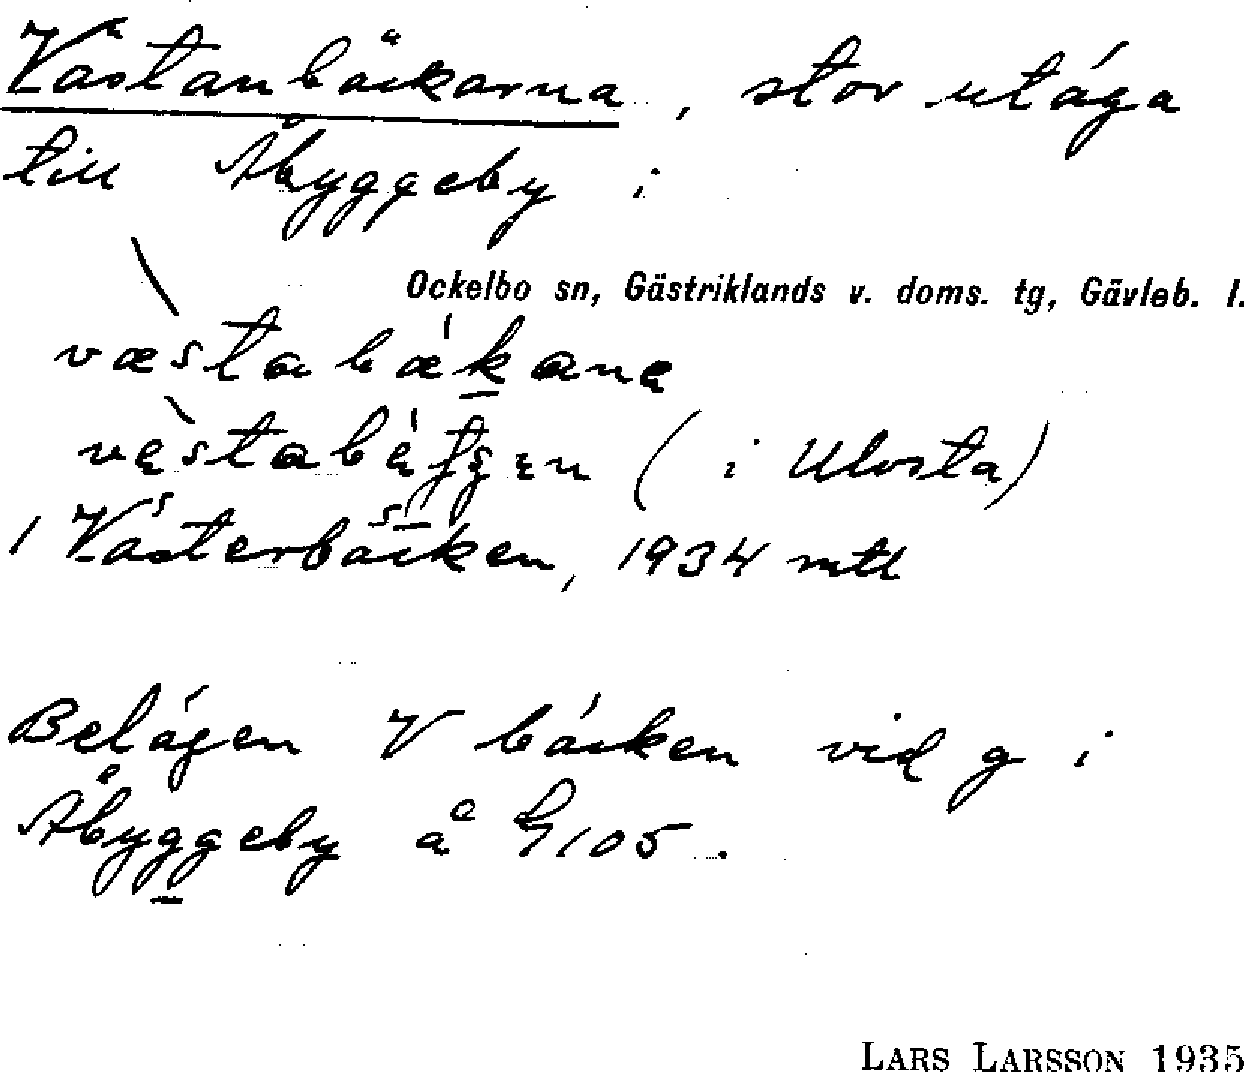 Västanbäckarna, stor utäga
till Åbyggeby i
Ockelbo sn, Gästriklands v. doms. tg, Gävleb. l.
væ̀stabǽkanę
(i Ulvsta)
/ Västerbäcken, 1934 mtl
Belägen V bäcken vid g i
Åbyggeby å G105.
LARS LARSSON 1935